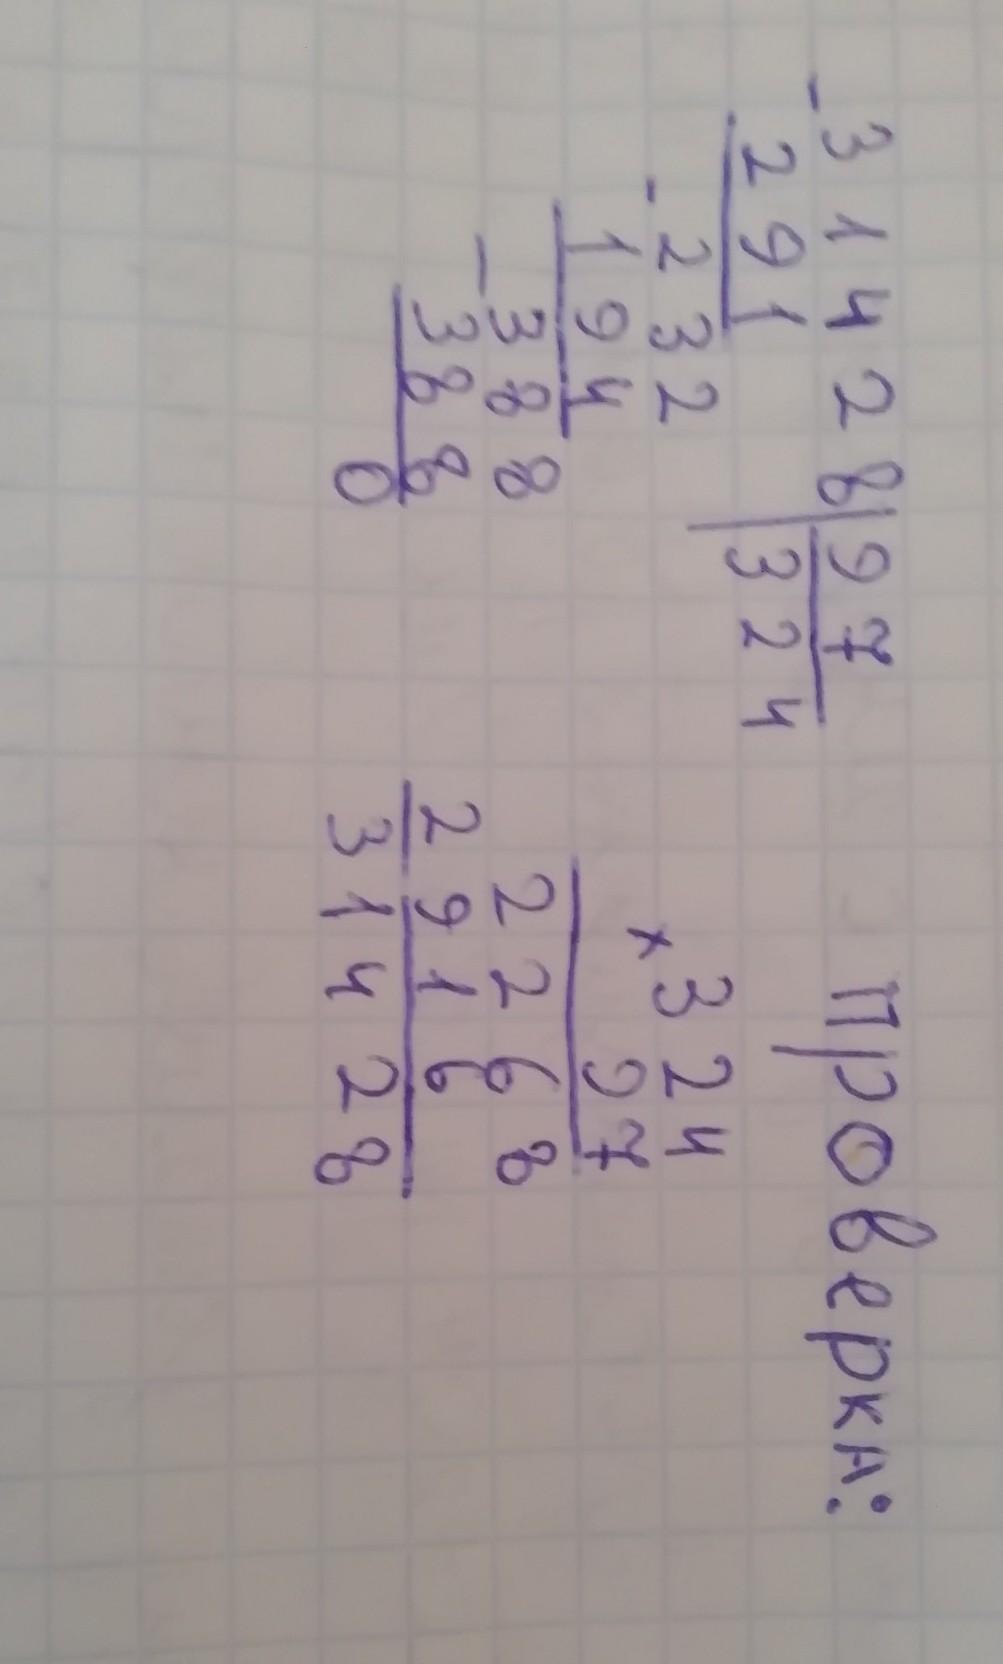 - 3 1 4 2 8 | 9 7
2 9 1 | 3 2 4
- 2 3 2
1 9 4
- 3 8 8
3 8 8
0
Проверка:
× 3 2 4
9 7
2 2 6 8
2 9 1 6
3 1 4 2 8